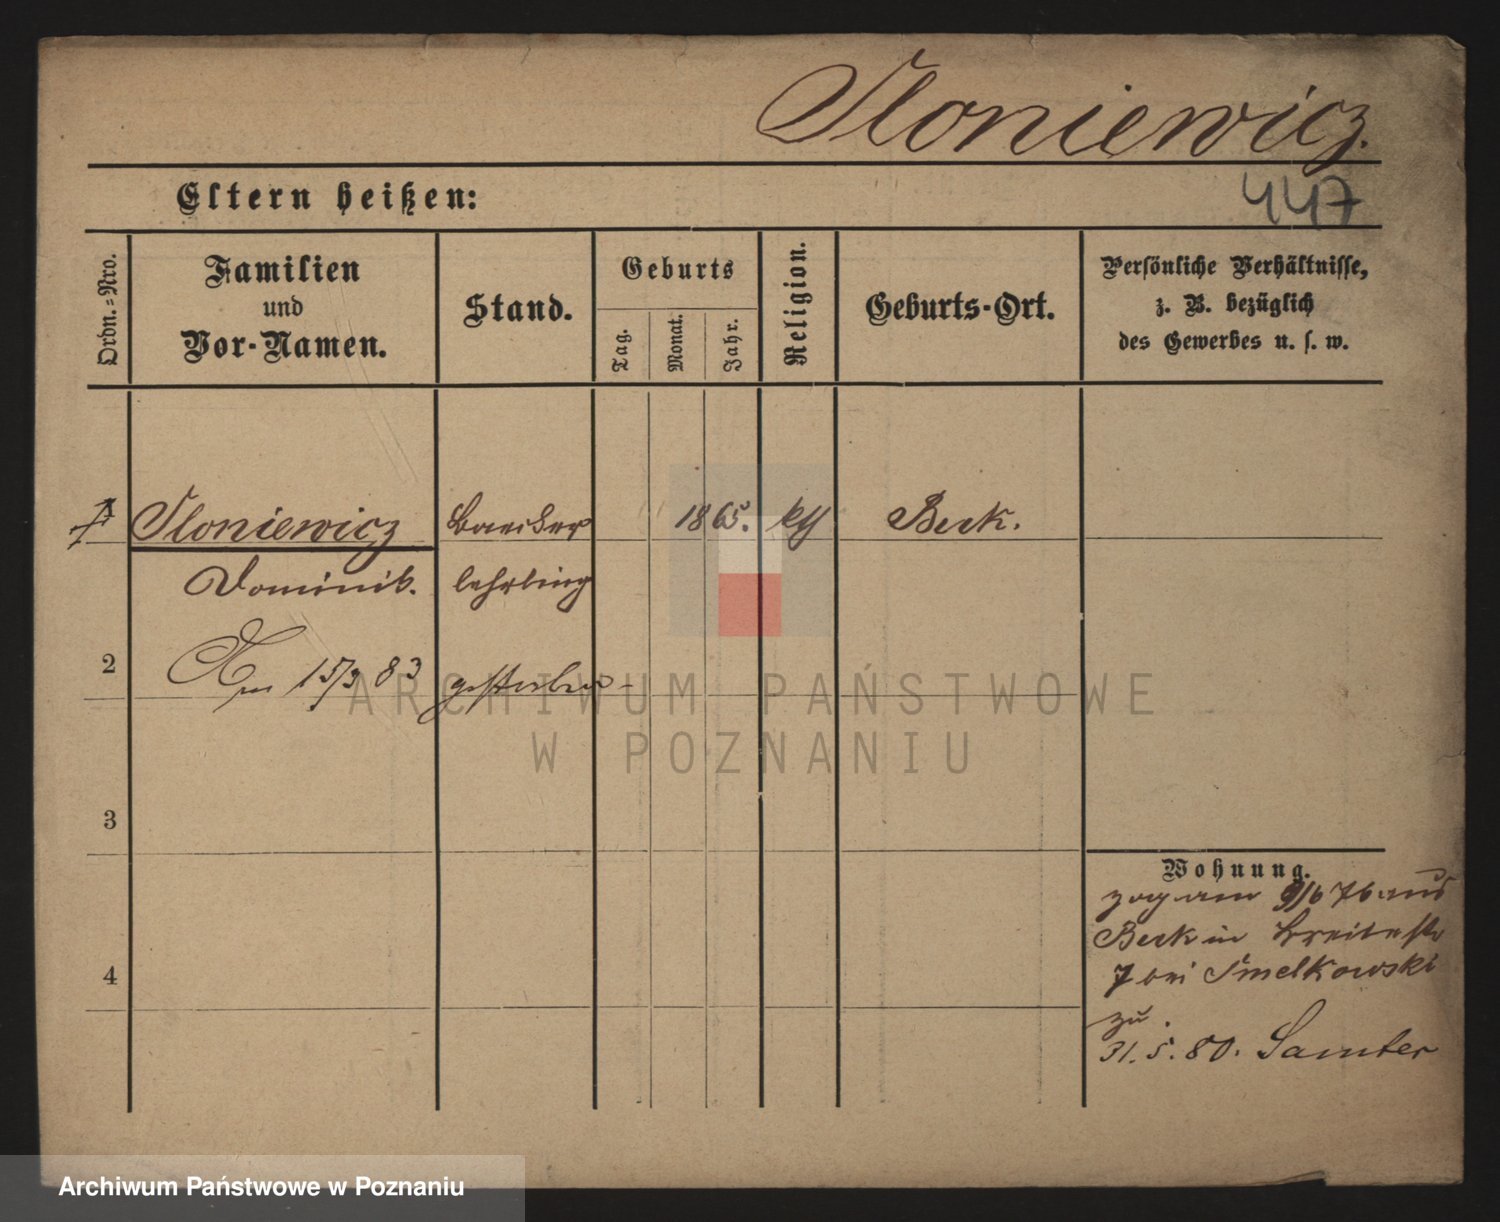 Sloniewicz.
447
Eltern heißen:
Ordn.=Nro.
Familien
und
Vor-Namen.
Stand.
Geburts
Tag.
Monat.
Jahr.
Religion.
Geburts-Ort.
Persönliche Verhältnisse,
z. B. bezüglich
des Gewerbes u. s. w.
1 Sloniewicz Baecker 1865. kth Berk.
Dominik. lehrling
2 Am 15/3 83 gestorben
ARCHIWUM PAŃSTWOWE
W POZNANIU
3
Wohnung.
zog am 9/6 76 aus
Berk in Breitestr
4
7 bei Smelkowski
zu.
31. 5. 80. Samter
Archiwum Państwowe w Poznaniu